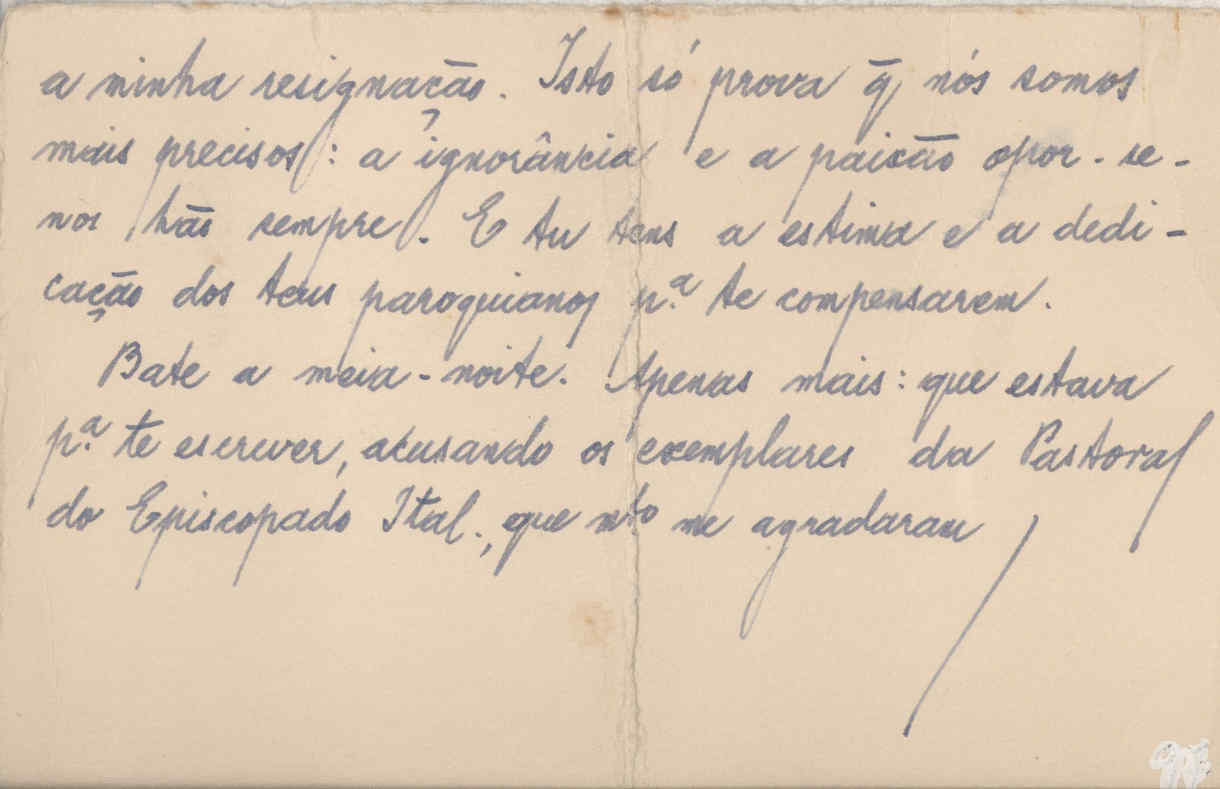 a minha resignação. Isto só prova q̃ nós somos
mais precisos: a ignorância e a paixão opor-se-
nos hão sempre. E tu tens a estima e a dedi-
cação dos teus paroquianos p.ª te compensarem.
Bate a meia-noite. Apenas mais: que estava
p.ª te escrever, acusando os exemplares da Pastoral
do Episcopado Ital., que m.to me agradaram